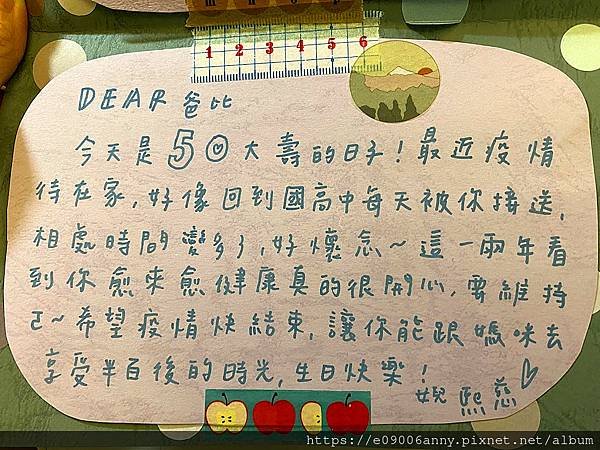 1 2 3 4 5 6
DEAR 爸比
今天是50大壽的日子!最近疫情
待在家,好像回到國高中每天被你接送,
相處時間變多了,好懷念~這一兩年看
到你愈來愈健康真的很開心,要維持
ㄛ~希望疫情快結束,讓你能跟媽咪去
享受半百後的時光,生日快樂!
女兒 熙慈♡
https://e09006anny.pixnet.net/album